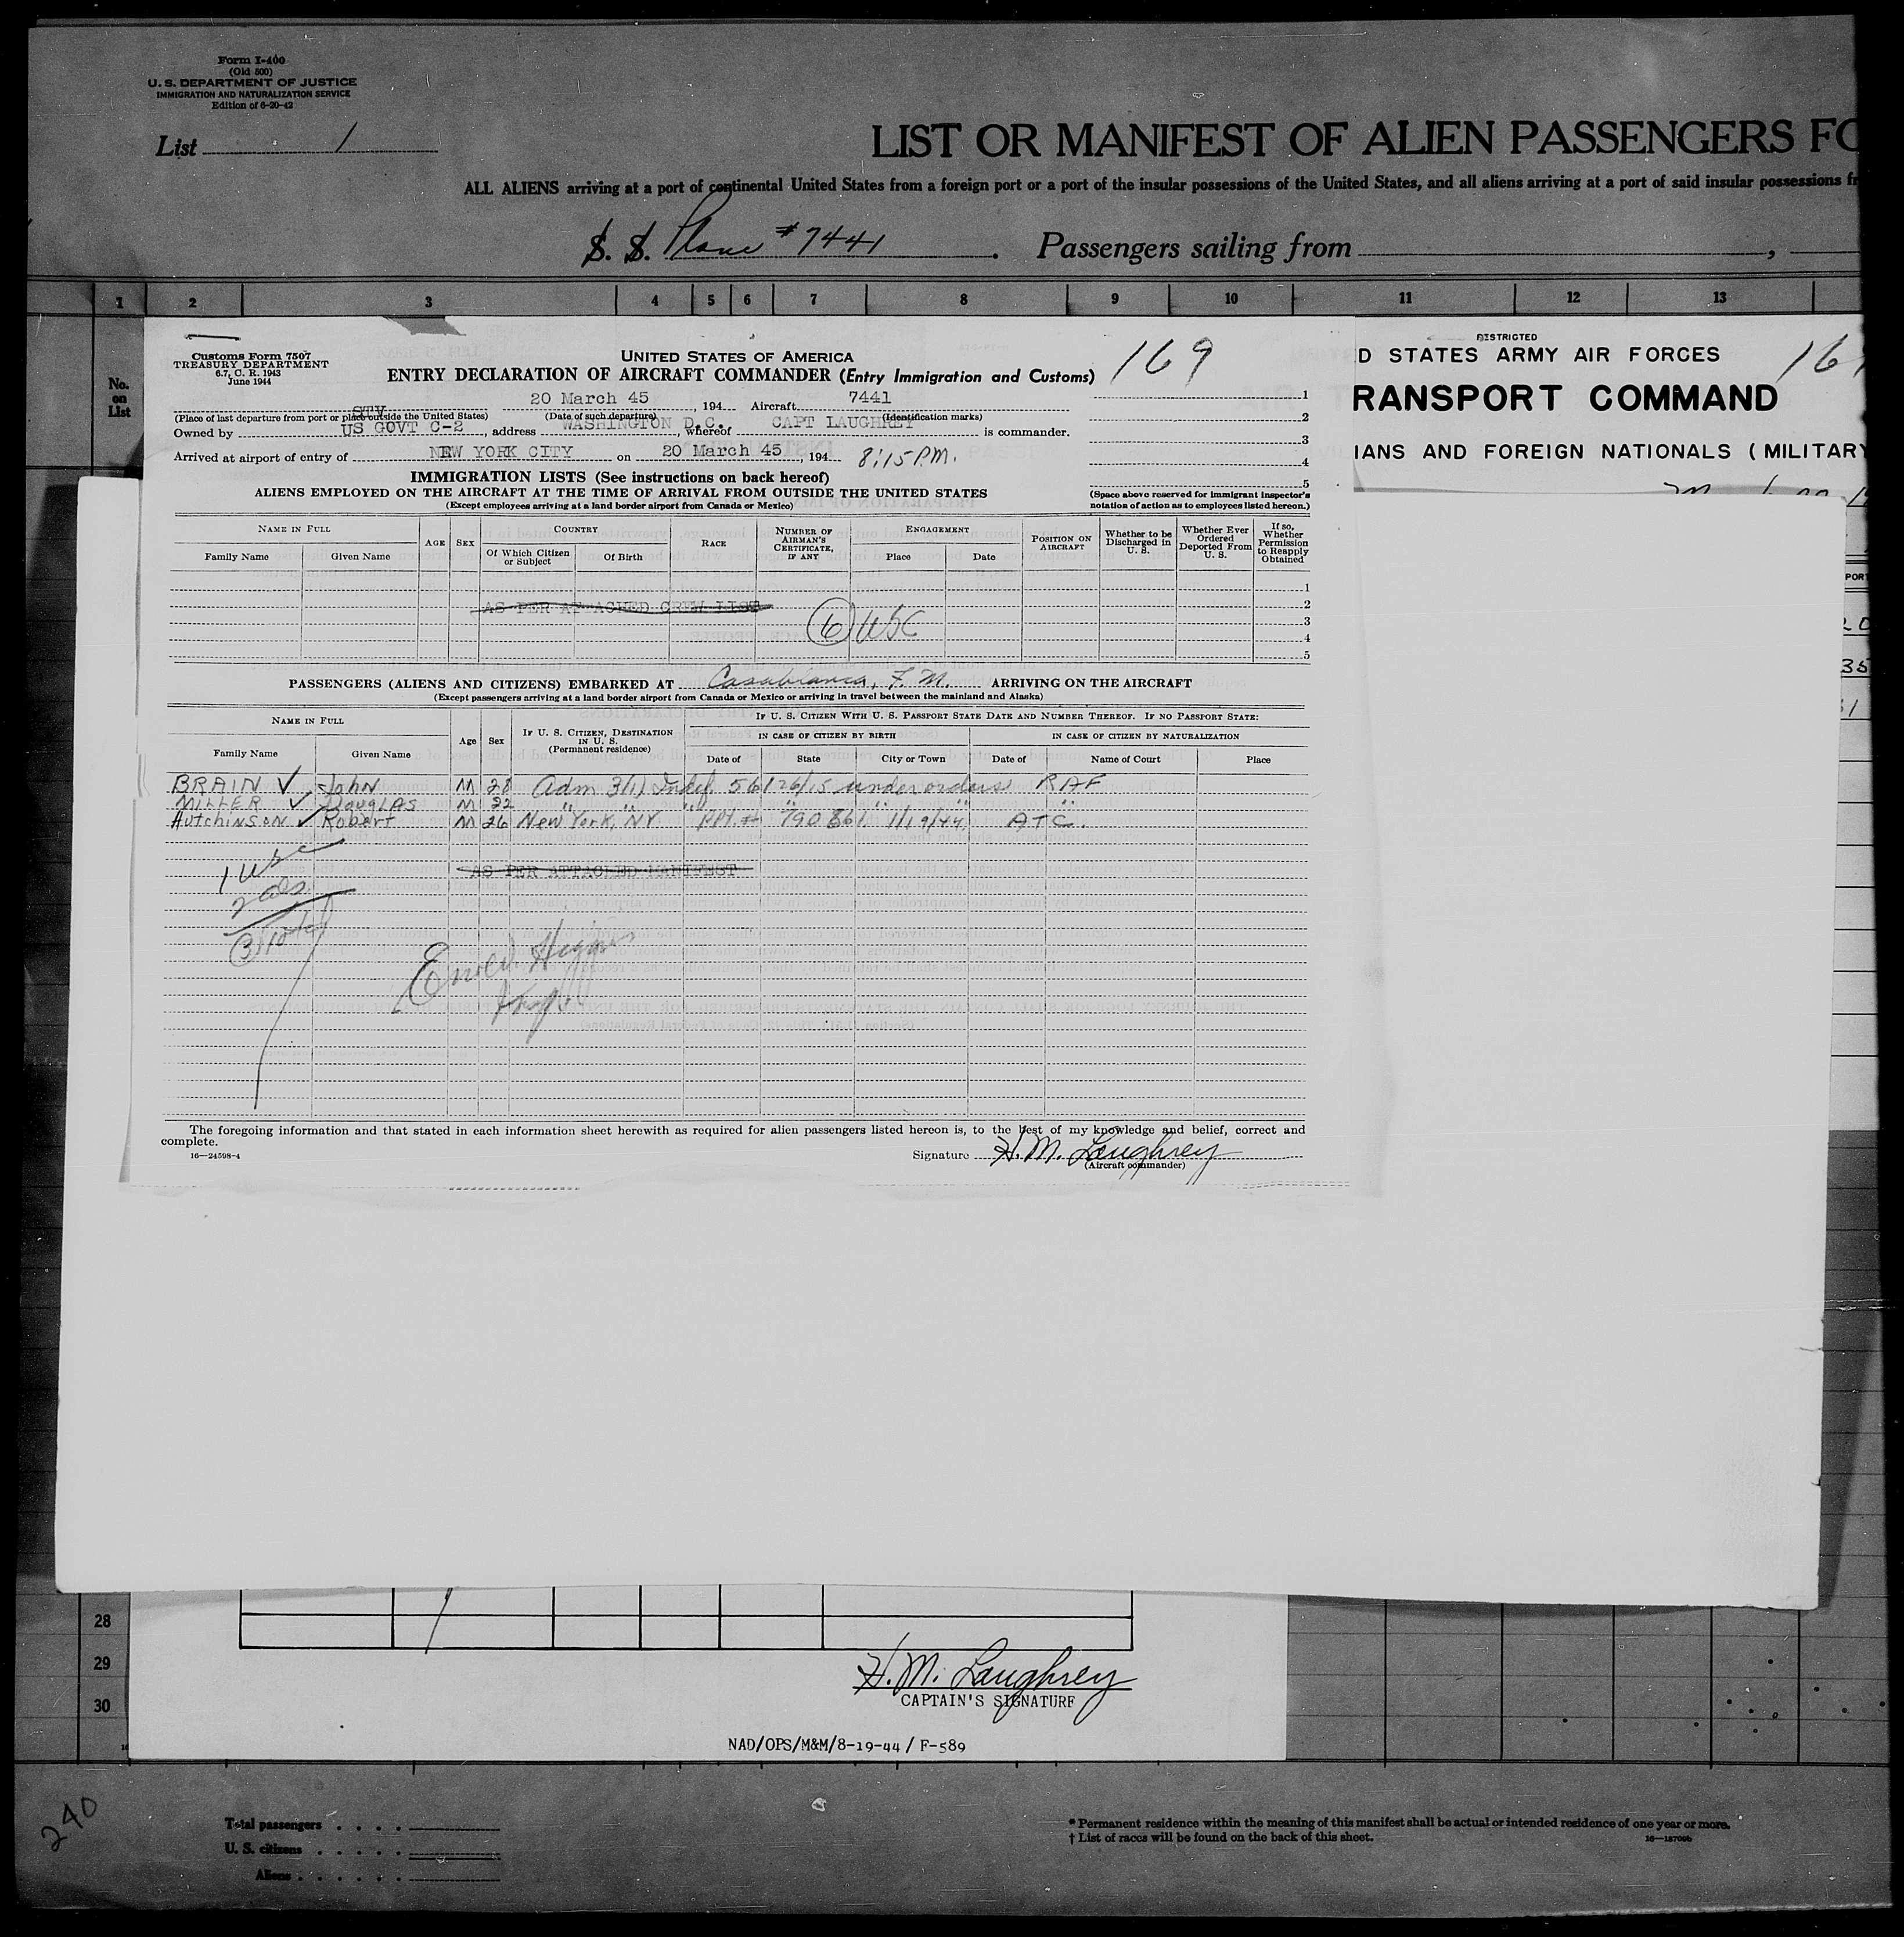 Form I-400
(Old 500)
U. S. DEPARTMENT OF JUSTICE
IMMIGRATION AND NATURALIZATION SERVICE
Edition of 6-20-42
List 1
LIST OR MANIFEST OF ALIEN PASSENGERS FO
ALL ALIENS arriving at a port of continental United States from a foreign port or a port of the insular possessions of the United States, and all aliens arriving at a port of said insular possessions fr
S. S. Plane #7441. Passengers sailing from ,
1 2 3 4 5 6 7 8 9 10 11 12 13
No. on List
Customs Form 7507
TREASURY DEPARTMENT
6.7, C. R. 1943
June 1944
UNITED STATES OF AMERICA
ENTRY DECLARATION OF AIRCRAFT COMMANDER (Entry Immigration and Customs)
169
STV 20 March 45, 194 Aircraft 7441
(Place of last departure from port or place outside the United States) (Date of such departure) (Identification marks)
Owned by US GOVT C-2, address WASHINGTON D.C., whereof CAPT LAUGHREY is commander.
Arrived at airport of entry of NEW YORK CITY on 20 March 45, 194 8:15 P.M.
1
2
3
4
5
(Space above reserved for immigrant inspector's notation of action as to employees listed hereon.)
IMMIGRATION LISTS (See instructions on back hereof)
ALIENS EMPLOYED ON THE AIRCRAFT AT THE TIME OF ARRIVAL FROM OUTSIDE THE UNITED STATES
(Except employees arriving at a land border airport from Canada or Mexico)
NAME IN FULL AGE SEX COUNTRY RACE NUMBER OF AIRMAN'S CERTIFICATE, IF ANY ENGAGEMENT POSITION ON AIRCRAFT Whether to be Discharged in U. S. Whether Ever Ordered Deported From U. S. If so, Whether Permission to Reapply Obtained
Family Name Given Name Of Which Citizen or Subject Of Birth Place Date
1
AS PER ATTACHED CREW LIST 2
6 USC 3
4
5
PASSENGERS (ALIENS AND CITIZENS) EMBARKED AT Casablanca, F. M. ARRIVING ON THE AIRCRAFT
(Except passengers arriving at a land border airport from Canada or Mexico or arriving in travel between the mainland and Alaska)
NAME IN FULL Age Sex IF U. S. CITIZEN, DESTINATION IN U. S. (Permanent residence) IF U. S. CITIZEN WITH U. S. PASSPORT STATE DATE AND NUMBER THEREOF. IF NO PASSPORT STATE:
IN CASE OF CITIZEN BY BIRTH IN CASE OF CITIZEN BY NATURALIZATION
Family Name Given Name Date of State City or Town Date of Name of Court Place
BRAIN ✓ John M 28 Adm 3(1) Indef. 56126/15 under orders RAF
MILLER ✓ Douglas M 22 " " " " " " "
Hutchinson ✓ Robert M 26 New York, NY PPt. # 790861 1/19/44, ATC.
1 usc
2 als
3 Total
AS PER ATTACHED MANIFEST
The foregoing information and that stated in each information sheet herewith as required for alien passengers listed hereon is, to the best of my knowledge and belief, correct and
complete.
16—24598-4
Signature H. M. Laughrey
(Aircraft commander)
RESTRICTED
D STATES ARMY AIR FORCES
16
RANSPORT COMMAND
IANS AND FOREIGN NATIONALS (MILITARY
PORT
35
28
29
30
H. M. Laughrey
CAPTAIN'S SIGNATURE
NAD/OPS/M&M/8-19-44 / F-589
240
Total passengers
U. S. citizens
Aliens
* Permanent residence within the meaning of this manifest shall be actual or intended residence of one year or more.
† List of races will be found on the back of this sheet.